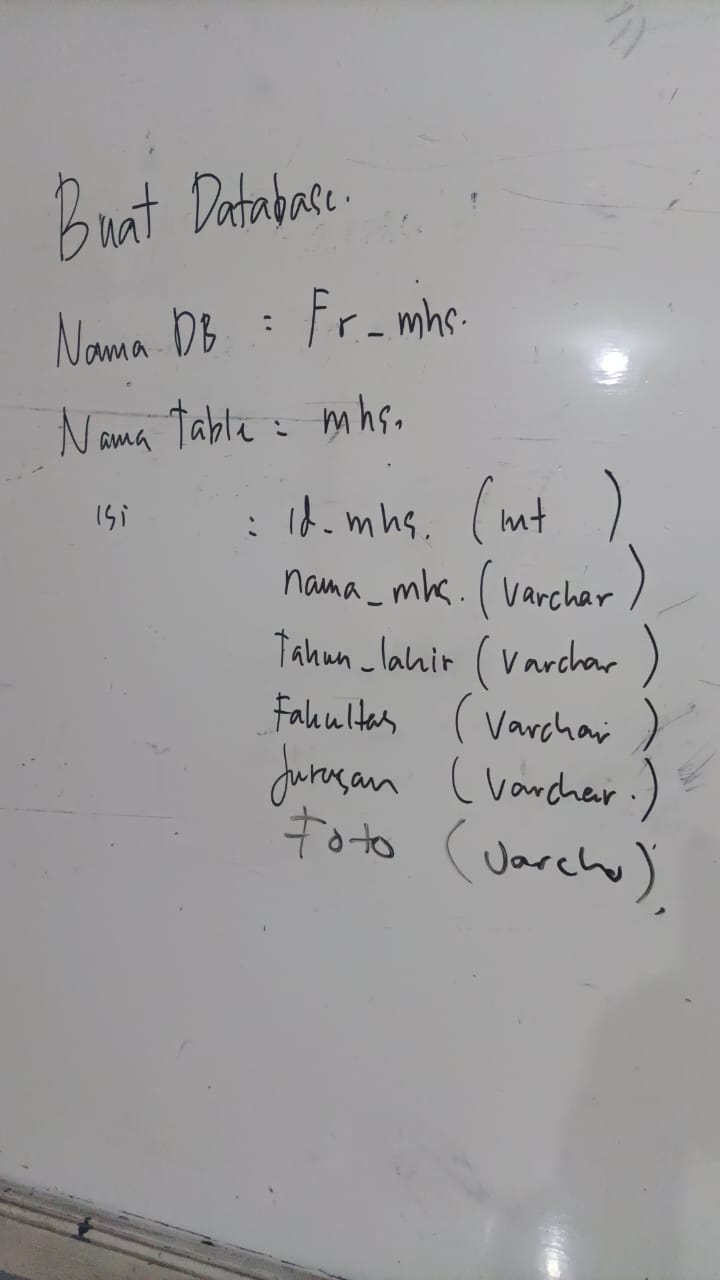 Buat Database.
Nama DB : Fr_mhs.
Nama Table : mhs.
isi : id_mhs. (int)
nama_mhs. (Varchar)
Tahun_lahir (Varchar)
Fakultas (Varchar)
Jurusan (Varchar.)
Foto (Varcha).